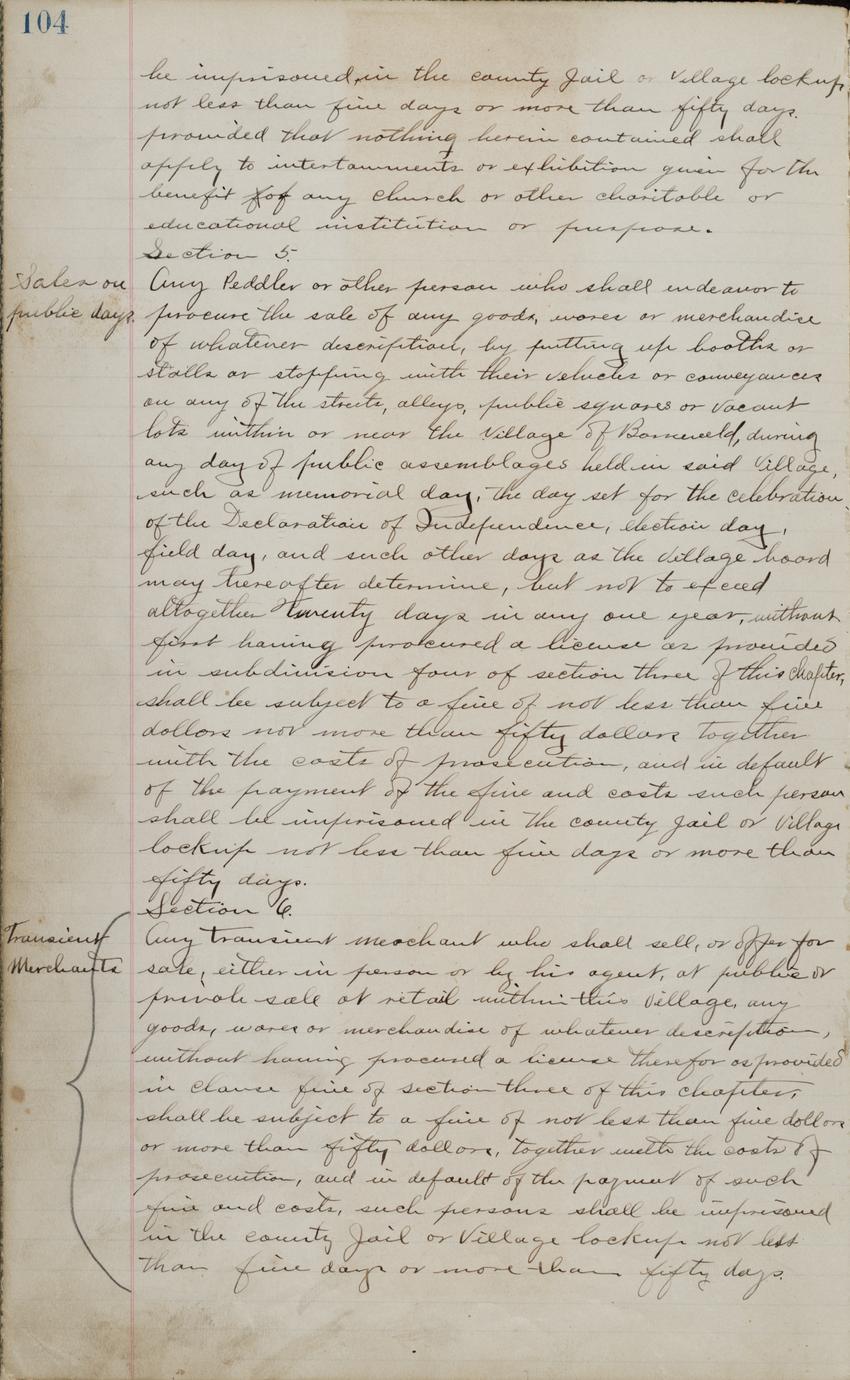 104
be imprisoned, in the county Jail or Village lockup
not less than five days or more than fifty days.
provided that nothing herein contained shall
apply to intertainments or exhibition given for the
benefit of any church or other charitable or
educational institution or purpose.
Section 5.
Sales on
public days.
Any Peddler or other person who shall endeavor to
procure the sale of any goods, wares or merchandise
of whatever description, by putting up booths or
stalls or stopping with their vehicles or conveyances
on any of the streets, alleys, public squares or vacant
lots within or near the Village of Barneveld, during
any day of public assemblages held in said Village,
such as memorial day, the day set for the celebration
of the Declaration of Independence, election day,
field day, and such other days as the Village board
may hereafter determine, but not to exceed
altogether Twenty days in any one year, without
first having procured a license as provided
in subdivision four of section three of this chapter,
shall be subject to a fine of not less than five
dollars nor more than fifty dollars together
with the costs of prosecution, and in default
of the payment of the fine and costs such person
shall be imprisoned in the county Jail or Village
lockup not less than five days or more than
fifty days.
Section 6.
Transient
Merchants
Any transient merchant who shall sell, or offer for
sale, either in person or by his agent, at public or
private sale at retail within this Village, any
goods, wares or merchandise of whatever description,
without having procured a license therefor as provided
in clause five of section three of this chapter,
shall be subject to a fine of not less than five dollars
or more than fifty dollars, together with the costs of
prosecution, and in default of the payment of such
fine and costs, such persons shall be imprisoned
in the county Jail or Village lockup not less
than five days or more than fifty days.